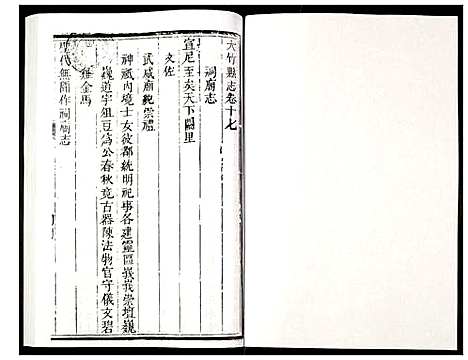 大竹縣志卷十七
祠廟志
宣尼至矣天下闕里
文佐
武威廟貌崇禮
神祇內境士女彼都統明祀事各建靈區峩峩崇壇巍
巍道宇俎豆為公春秋競古器陳法物官守儀文碧
雞金馬
歷代無闕作祠廟志